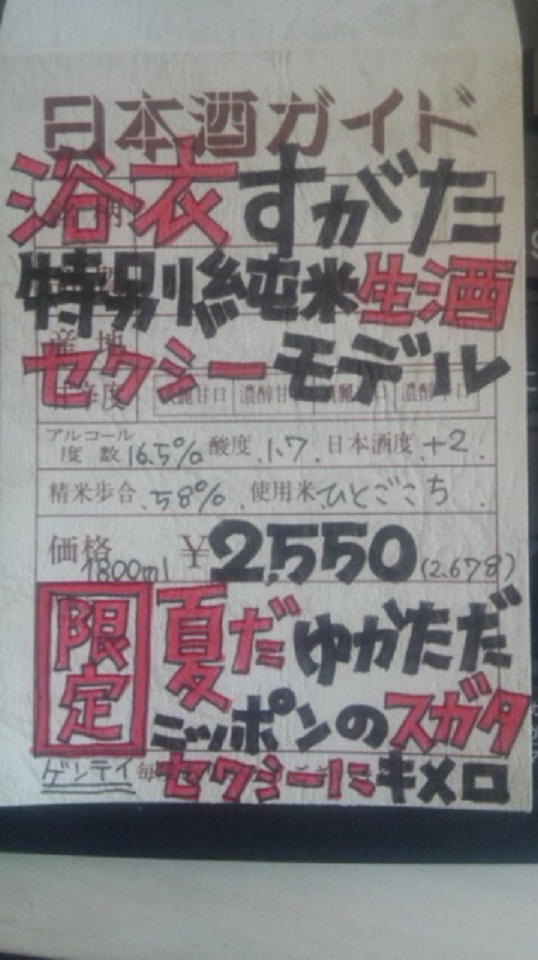 日本酒ガイド
浴衣すがた
特別純米生酒
産地
セクシーモデル
アルコール度数 16.5% 酸度 1.7 日本酒度 +2
精米歩合 58% 使用米 ひとごこち
価格 1800ml ¥2,550 (2,678)
限定
夏だ ゆかただ
ニッポンのスガタ
セクシーにキメロ
ゲンテイ